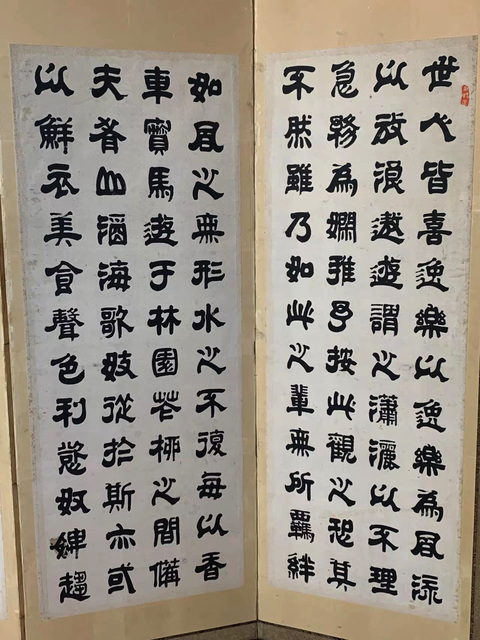 世人皆喜逸樂以逸樂為風流
以放浪遨遊謂之瀟灑以不理
急務為嫻雅予按此觀之恐其
不然雖乃如此之輩無所羈絆
如風之無形水之不復每以香
車寶馬遊于林園花柳之間備
夫肴山酒海歌妓從於斯亦或
以鮮衣美食聲色利慾奴婢趨